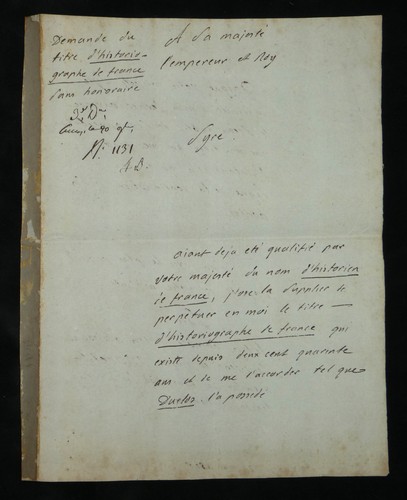 Demande du
titre d'historio-
graphe de france
sans honoraire
N. 1131
A Sa majesté
l'empereur et Roy
Syre
aiant deja eté qualifié par
votre majesté du nom d'historien
de france, j'ose la supplier de
perpétuer en moi le titre —
d'historiographe de france qui
existe depuis deux cent quarante
ans et de me l'accorder tel que
Duclos l'a possédé